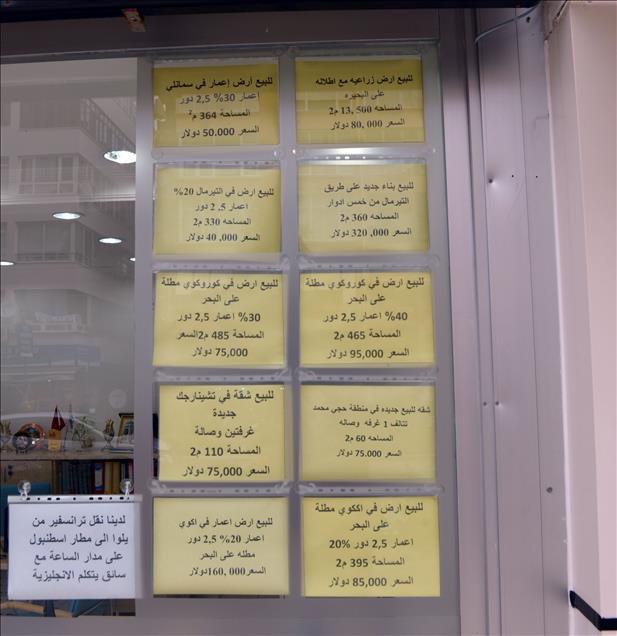 للبيع ارض زراعيه مع اطلاله
على البحيره
المساحه 13,500 م2
السعر 80,000 دولار
للبيع أرض إعمار في سمانلي
إعمار 30% 2,5 دور
المساحة 364 م²
السعر 50.000 دولار
للبيع بناء جديد على طريق
التيرمال من خمس ادوار
المساحه 360 م2
السعر 320,000 دولار
للبيع ارض في التيرمال 20%
اعمار 2,5 دور
المساحه 330 م2
السعر 40,000 دولار
للبيع ارض في كوروكوي مطلة
على البحر
40% اعمار 2,5 دور
المساحة 465 م2
السعر 95,000 دولار
للبيع ارض في كوروكوي مطلة
على البحر
30% اعمار 2,5 دور
المساحة 485 م2السعر
75,000 دولار
شقه للبيع جديده في منطقة حجي محمد
تتالف 1 غرفه وصاله
المساحه 60 م2
السعر 75.000 دولار
للبيع شقة في تشينارجك
جديدة
غرفتين وصالة
المساحة 110 م2
السعر 75,000 دولار
للبيع ارض في اككوي مطلة
على البحر
اعمار 2,5 دور 20%
المساحة 395 م2
السعر 85,000 دولار
للبيع ارض اعمار في اكوي
اعمار 20% 2,5 دور
مطله على البحر
السعر160,000 دولار
لدينا نقل ترانسفير من
يلوا الى مطار اسطنبول
على مدار الساعة مع
سائق يتكلم الانجليزية